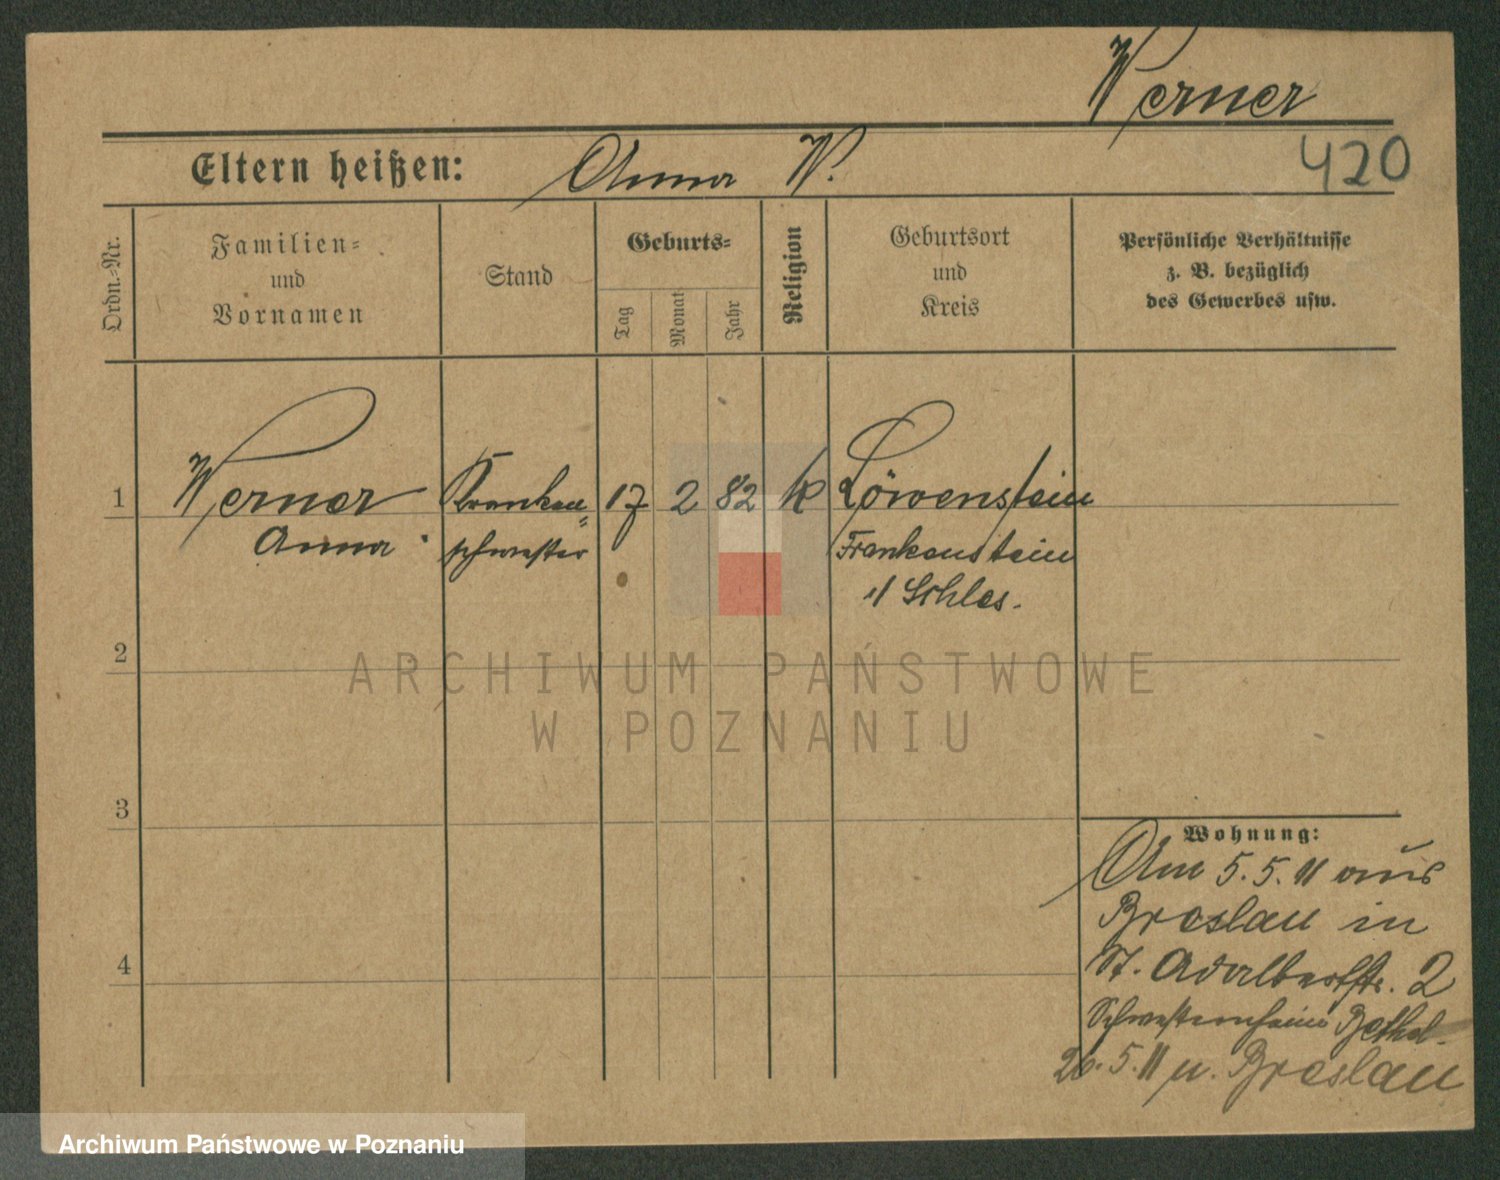 Werner
Eltern heißen: Anna W.
420
Ordn.-Nr.
Familien-
und
Vornamen
Stand
Geburts-
Tag
Monat
Jahr
Religion
Geburtsort
und
Kreis
Persönliche Verhältnisse
z. B. bezüglich
des Gewerbes usw.
1 Werner Kranken= 17 2 82 k Löwenstein
Anna schwester Frankenstein
i/ Schles.
2
ARCHIWUM PAŃSTWOWE
W POZNANIU
3
Wohnung:
Am 5.5.11 aus
Breslau in
St. Adalbertstr. 2
Schwesternheim Bethel.
4
26.5.11 n. Breslau
Archiwum Państwowe w Poznaniu